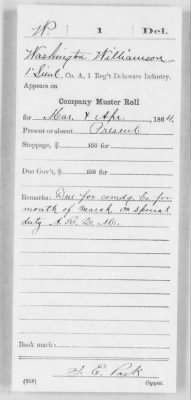 W. 1 Del.
Washington Williamson
1" Lieut, Co. A, 1 Reg't Delaware Infantry.
Appears on
Company Muster Roll
for Mar & Apr, 1864.
Present or absent Present
Stoppage, $ 100 for
Due Gov't, $ 100 for
Remarks: Due for comdg. Co. for
month of March. On special
duty A. R. D.
Book mark:
S. E. Park
(358) Copyist.